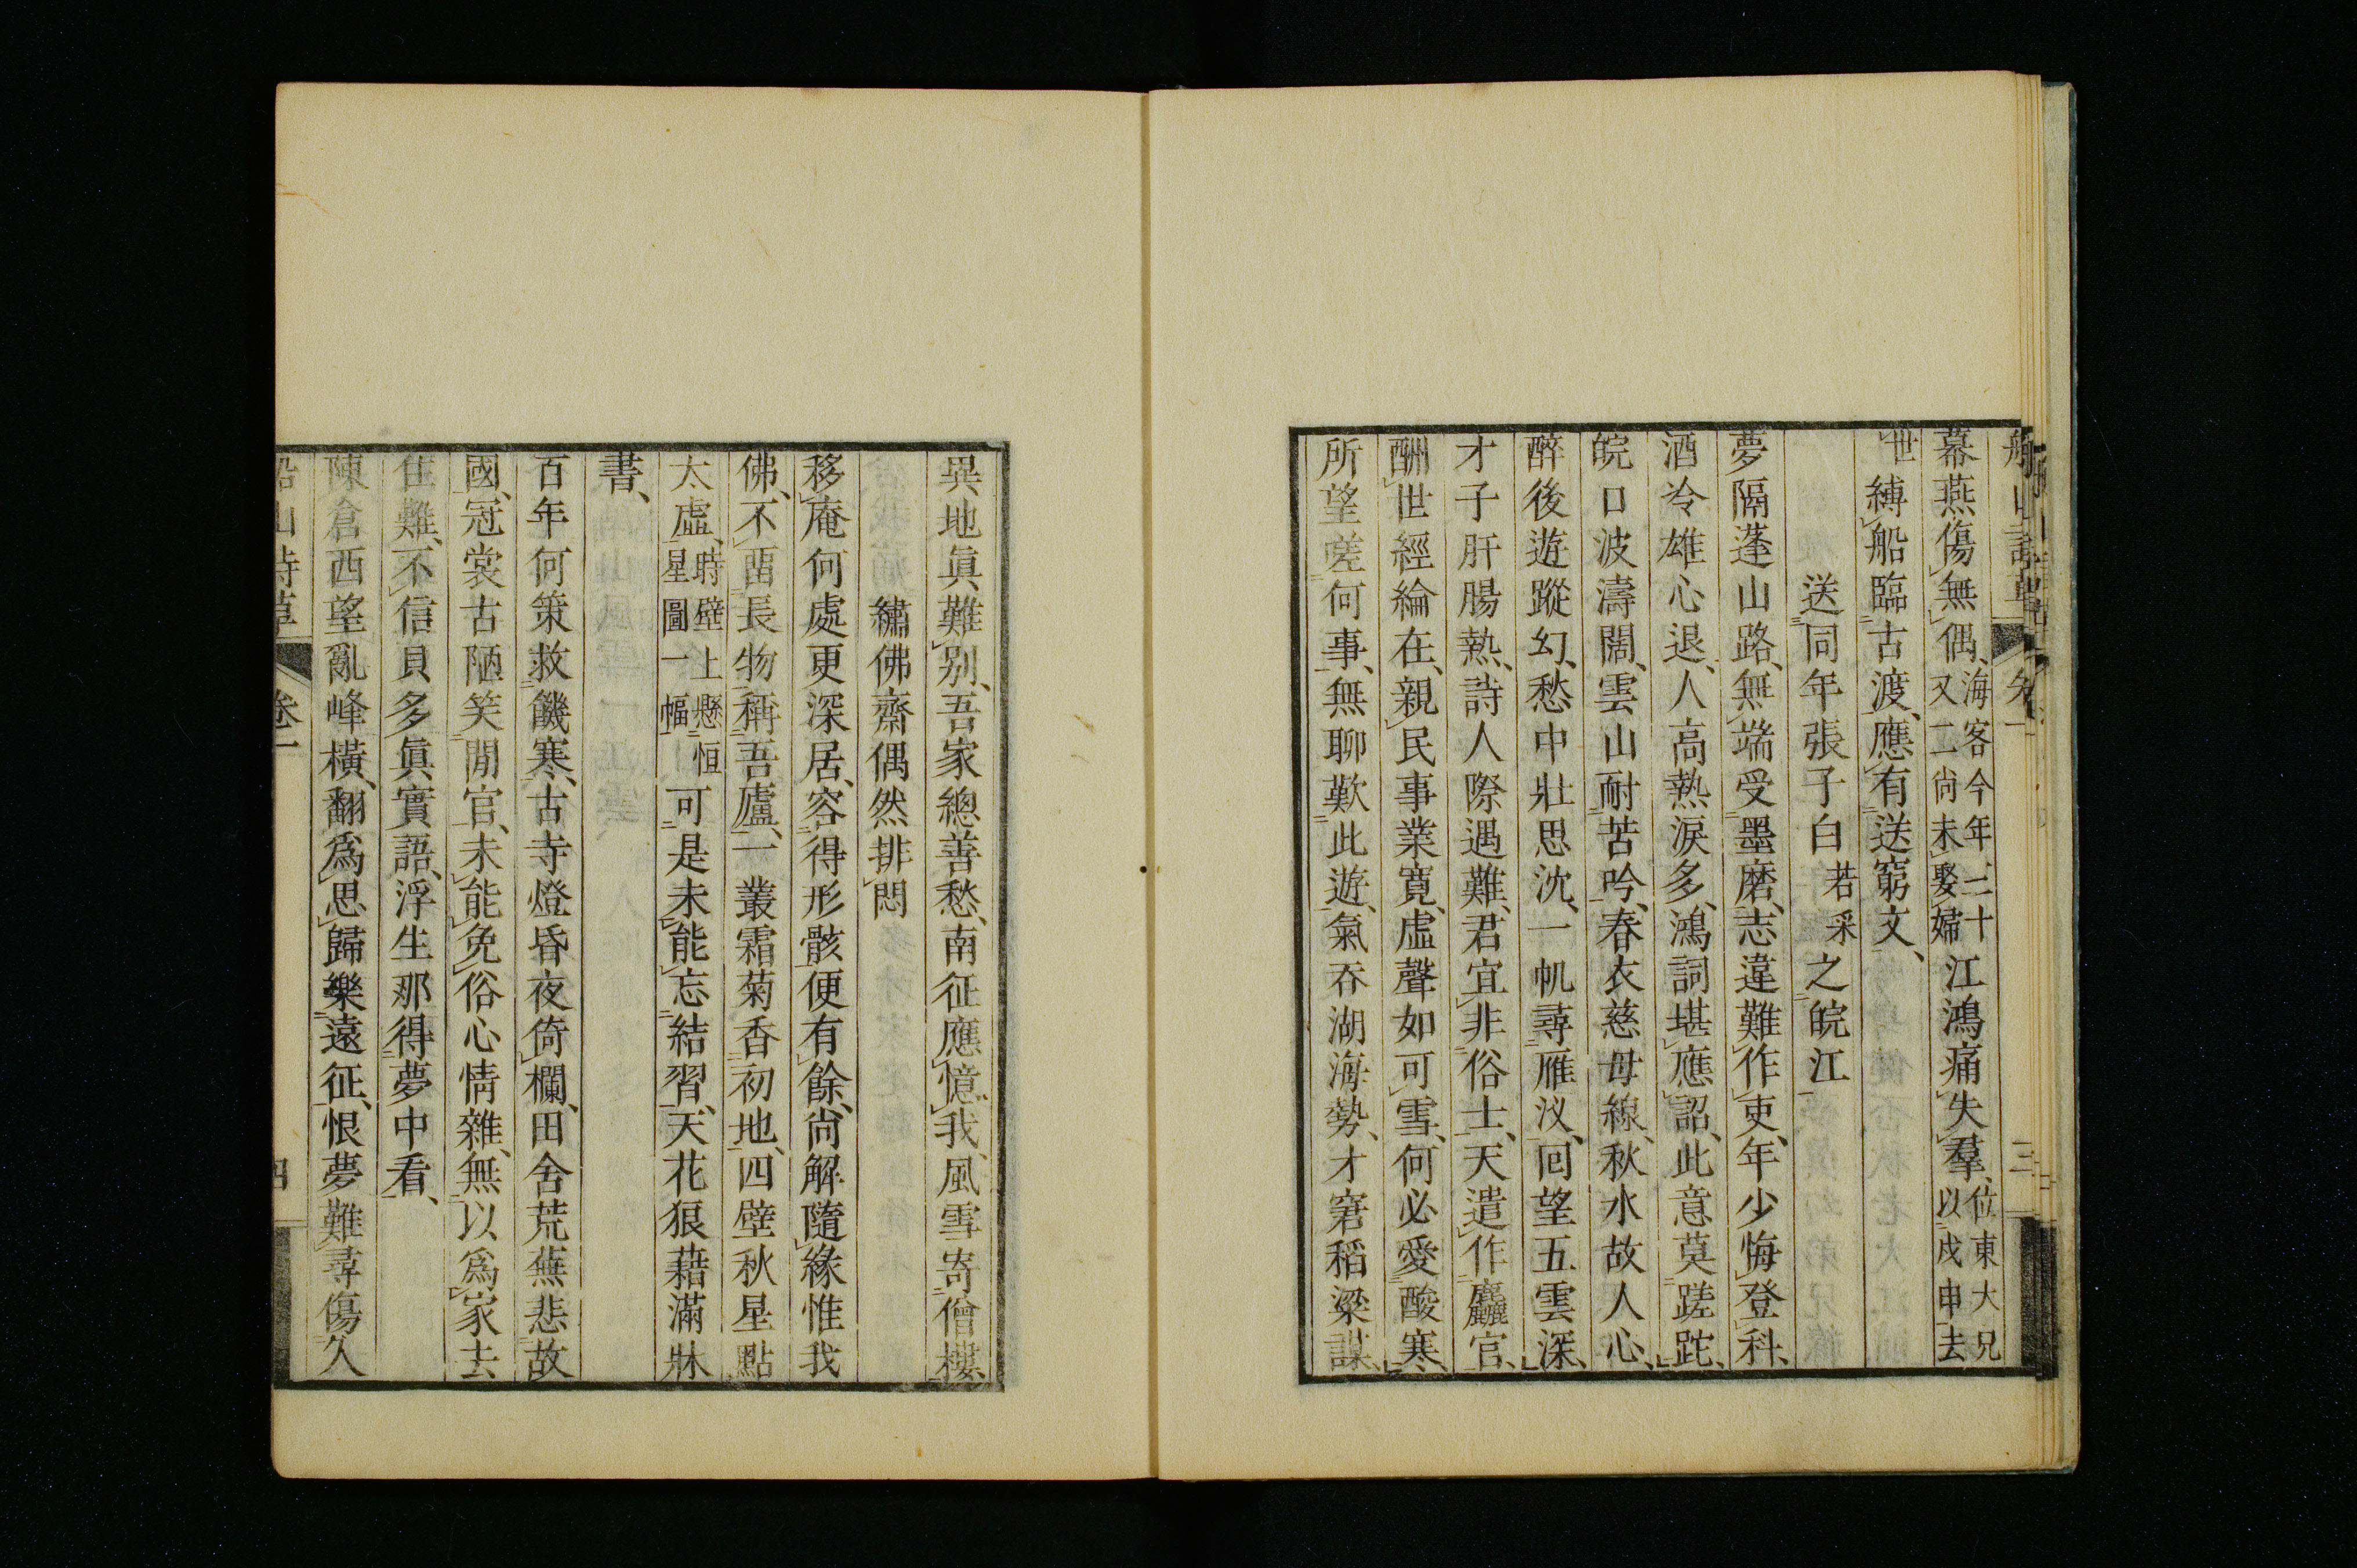 船山詩草 卷二 三
幕燕傷無偶、海客今年三十又二尚未娶婦江鴻痛失羣、位東大兄以戊申去
世縛船臨古渡、應有送窮文、
送同年張子白若采之皖江
夢隔蓬山路、無端受墨磨、志違難作吏、年少悔登科、
酒冷雄心退、人高熱淚多、鴻詞堪應詔、此意莫蹉跎、
皖口波濤闊、雲山耐苦吟、春衣慈母線、秋水故人心、
醉後遊蹤幻、愁中壯思沈、一帆尋雁汊、回望五雲深、
才子肝腸熱、詩人際遇難、君宜非俗士、天遣作麤官、
酬世經綸在、親民事業寬、虛聲如可雪、何必愛酸寒、
所望嗟何事、無聊歎此遊、氣吞湖海勢、才窘稻粱謀、
異地眞難別、吾家總善愁、南征應憶我、風雪寄僧樓、
繡佛齋偶然排悶
移庵何處更深居、容得形骸便有餘、尚解隨緣惟我
佛、不畱長物稱吾廬、一叢霜菊香初地、四壁秋星點
太虛、時壁上懸恒星圖一幅可是未能忘結習、天花狼藉滿牀
書、
百年何策救饑寒、古寺燈昏夜倚欄、田舍荒蕪悲故
國、冠裳古陋笑閒官、未能免俗心情雜、無以爲家去
住難、不信貝多眞實語、浮生那得夢中看、
陳倉西望亂峰橫、翻爲思歸樂遠征、恨夢難尋傷久
船山詩草 卷二 四